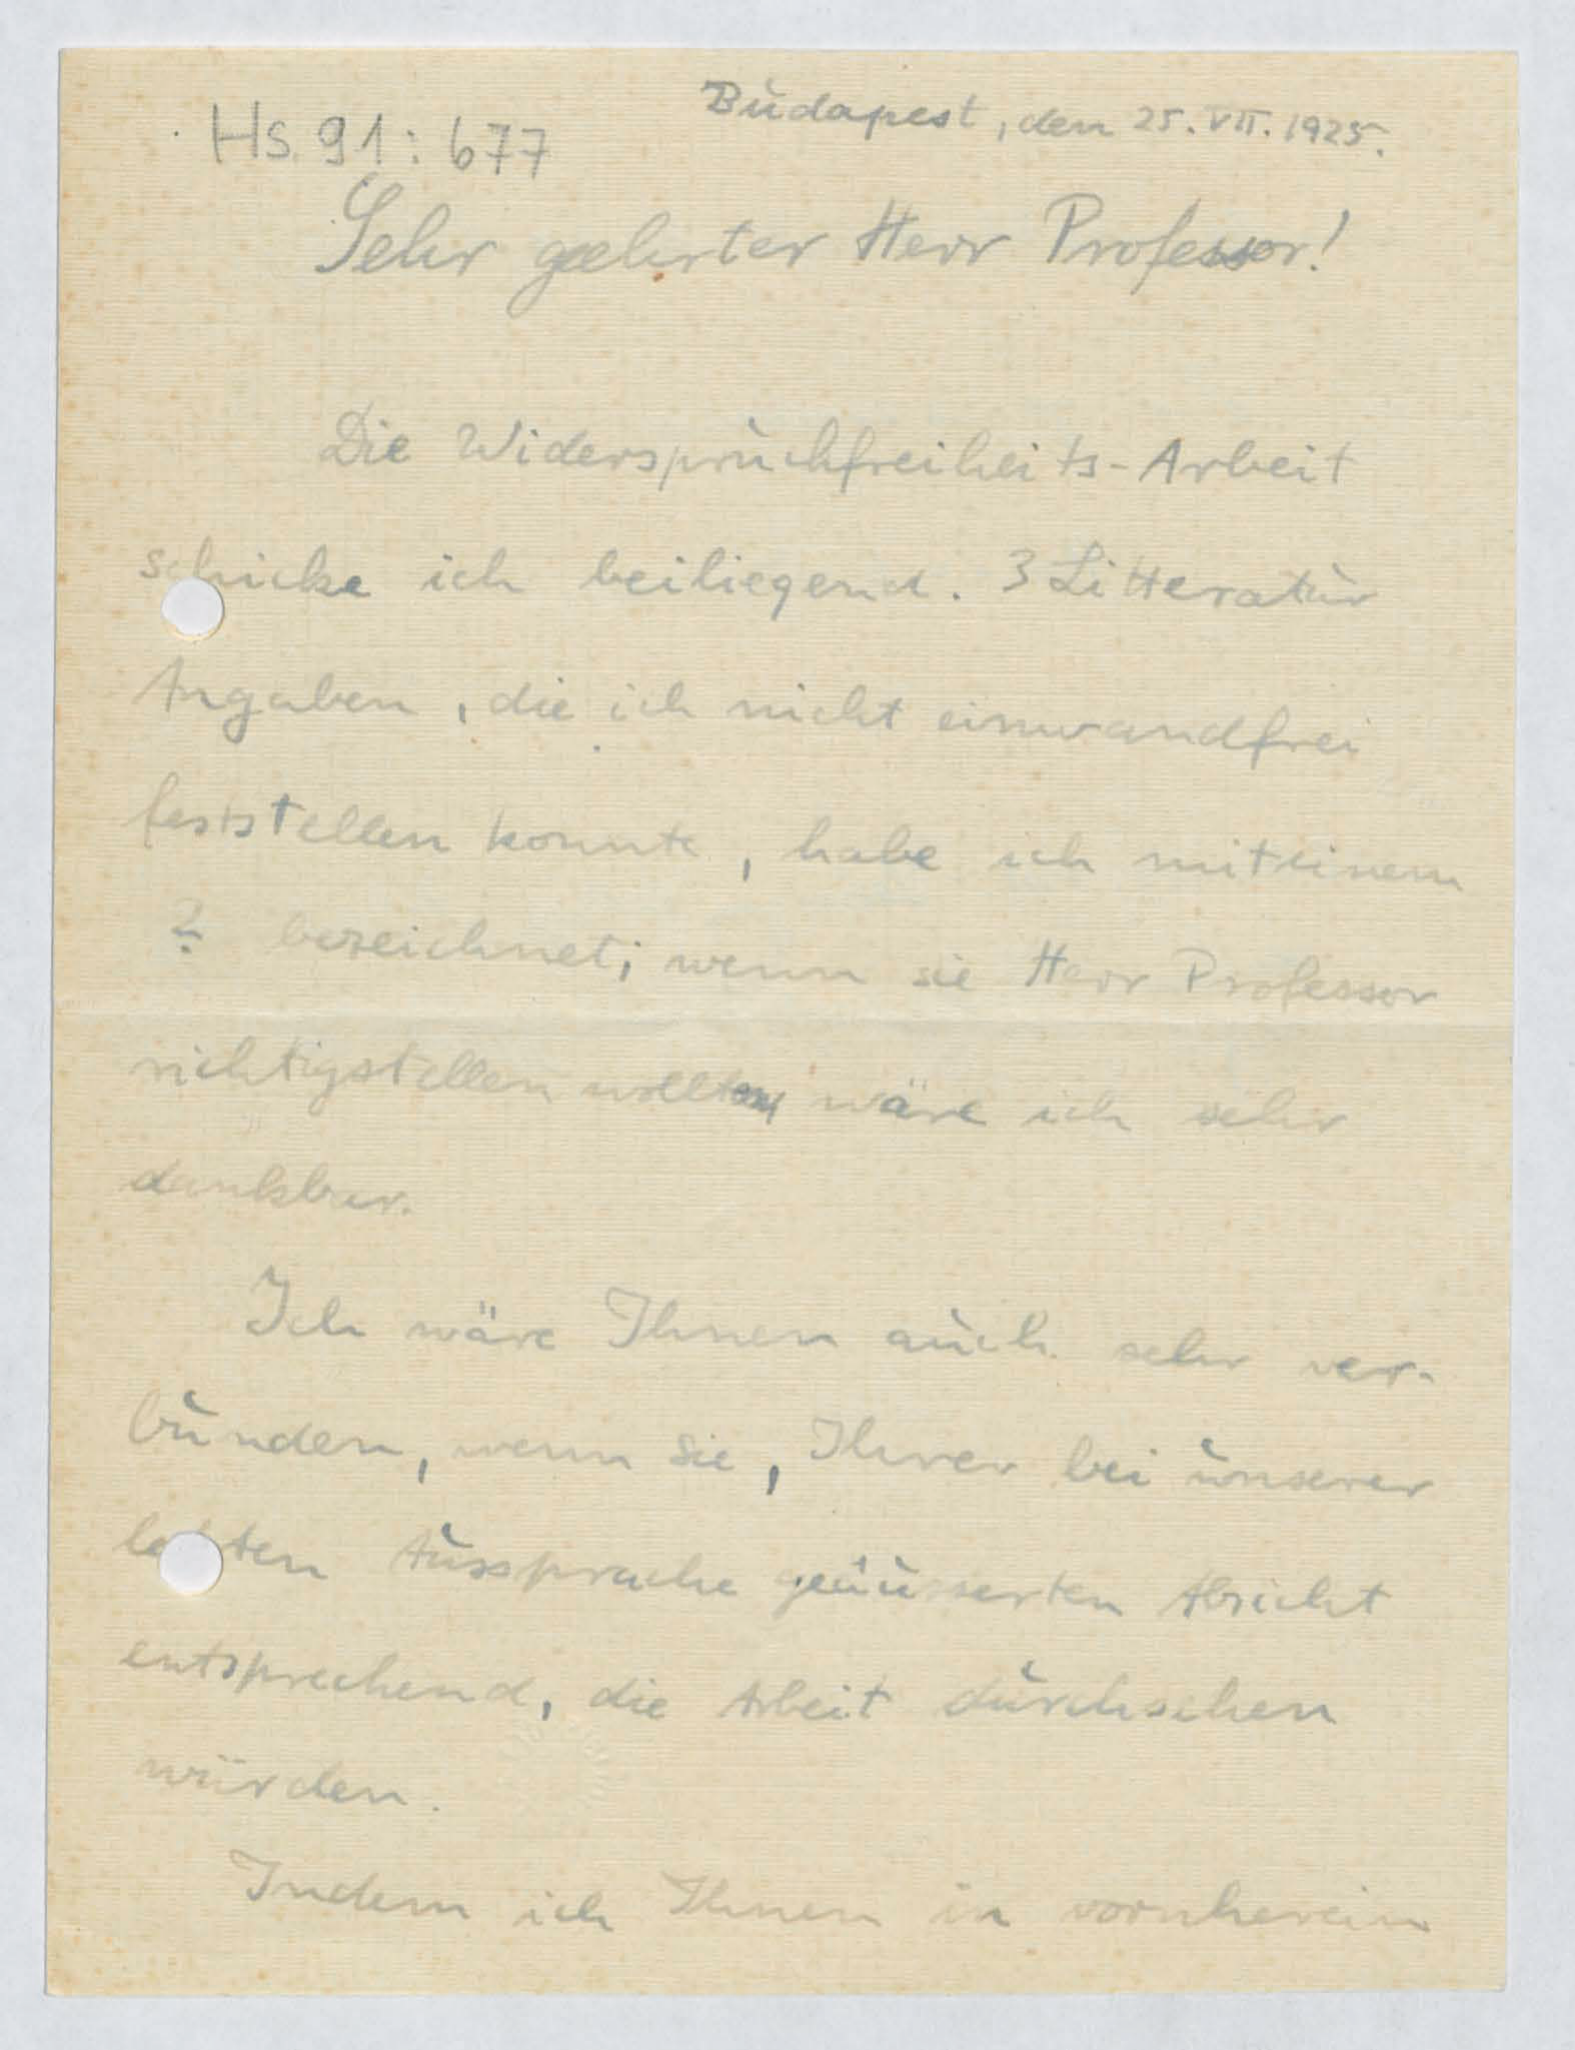 Budapest, den 25. VII. 1925.
Hs. 91: 677
Sehr geehrter Herr Professor!
Die Widerspruchfreiheits-Arbeit
schicke ich beiliegend. 3 Litteratur
Angaben, die ich nicht einwandfrei
feststellen konnte, habe ich mit einem
? bezeichnet; wenn sie Herr Professor
richtigstellen wollten wäre ich sehr
dankbar.
Ich wäre Ihnen auch sehr ver-
bunden, wenn Sie, Ihrer bei unserer
letzten Aussprache geäusserten Absicht
entsprechend, die Arbeit durchsehen
würden.
Indem ich Ihnen in vornherein